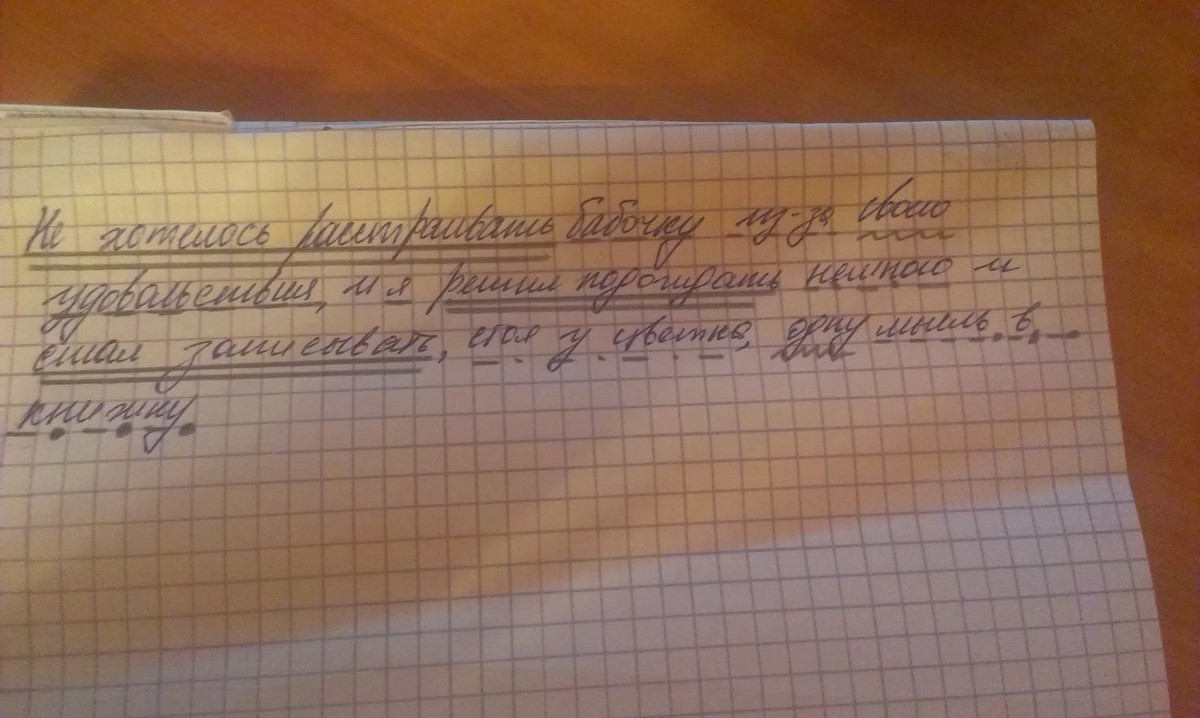 Не хотелось расстраивать бабочку из-за свого
удовольствия, и я решил подождать немного и
стал записывать, стоя у цветка, одну мысль в
книжку.